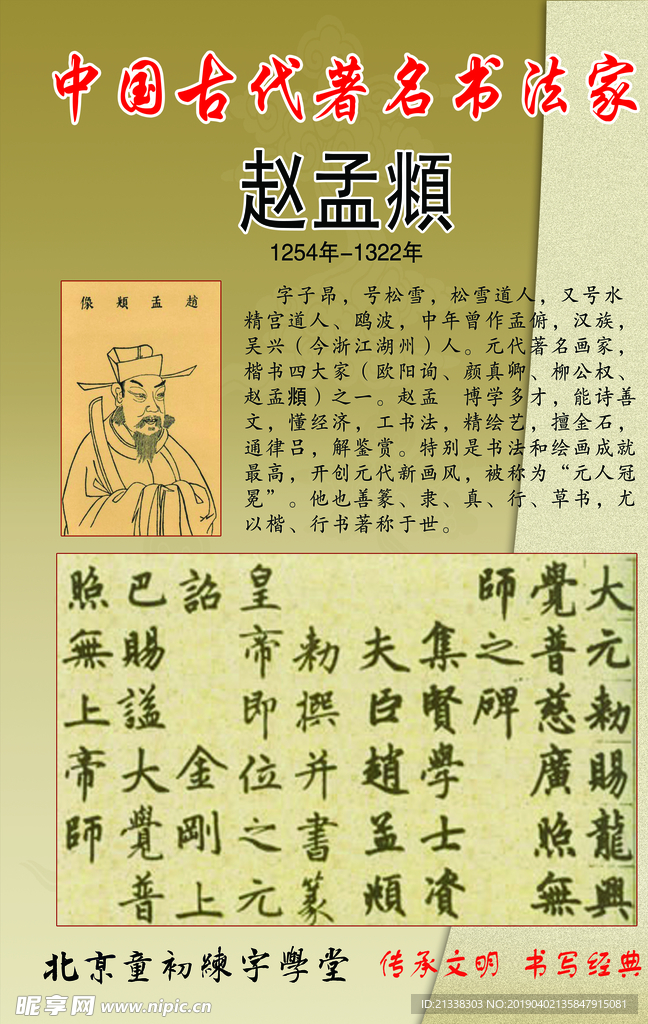 中国古代著名书法家
赵孟頫
1254年-1322年
趙孟頫像
字子昂，号松雪，松雪道人，又号水
精宫道人、鸥波，中年曾作孟俯，汉族，
吴兴（今浙江湖州）人。元代著名画家，
楷书四大家（欧阳询、颜真卿、柳公权、
赵孟頫）之一。赵孟　博学多才，能诗善
文，懂经济，工书法，精绘艺，擅金石，
通律吕，解鉴赏。特别是书法和绘画成就
最高，开创元代新画风，被称为“元人冠
冕”。他也善篆、隶、真、行、草书，尤
以楷、行书著称于世。
大元勅賜龍興
覺普慈廣照無
師之碑
集賢學士資
夫臣趙孟頫
勅撰并書篆
皇帝即位之元
詔金剛上
巴賜謚大覺普
照無上帝師
北京童初練字學堂
传承文明 书写经典
昵享网 www.nipic.cn
ID:21338303 NO:20190402135847915081